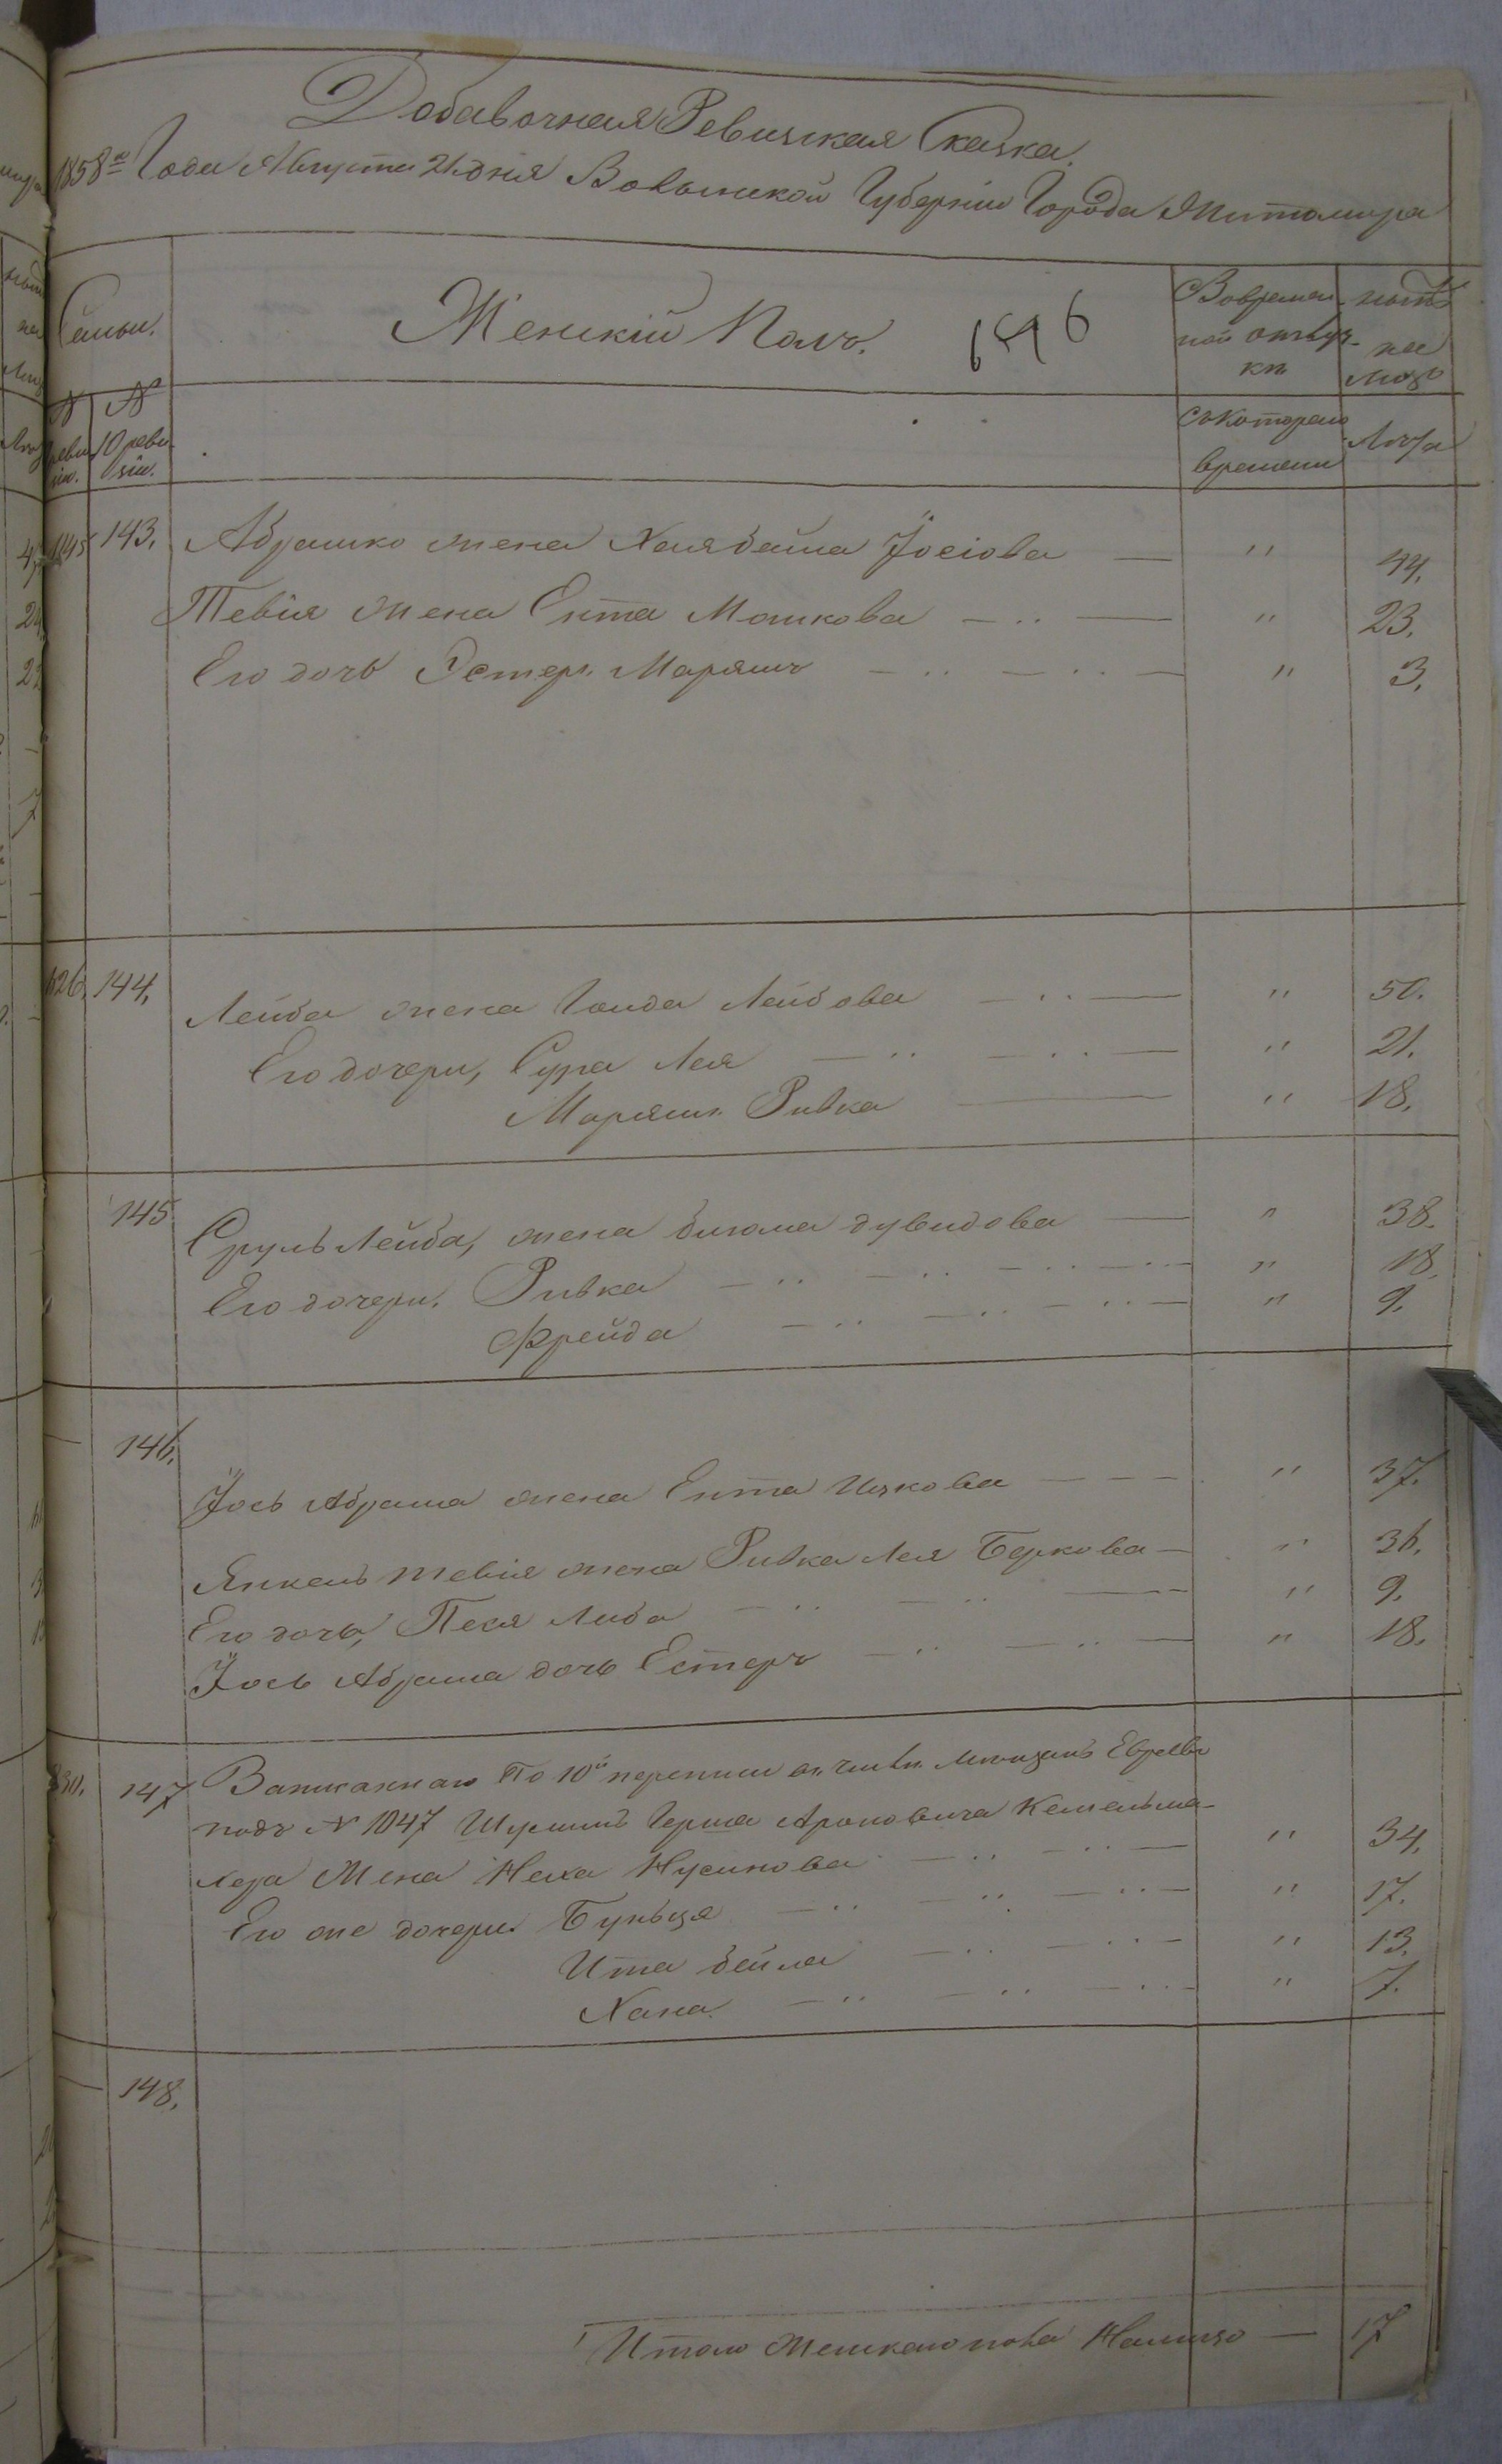 Добавочная Ревизская Сказка.
1858го Года Августа 21 дня Волынской Губерніи Города Житомира
Семьи. Женскій Полъ. Вовремен ной отлуч- ки нынѣ на лицо
N реви зіи. N 10 реви зіи. Съкотораго времени Лѣта
143. Абрашко жена Хаябаша Йосіова — " 44.
Тевія жена Ента Мошкова — " 23.
Его дочь Эстеръ Марямъ — " 3.
626. 144. Лейба жена Голда Лейбова — " 50.
Его дочери, Сура Лея — " 21.
Марямъ Ривка — " 18.
145 Сруль Лейба, жена блюма дувидова — " 38.
Его дочери. Ривка — " 18.
Фрейда — " 9.
146. Йось Абрама жена Ента Ицкова — " 37.
Янкель тевія жена Ривка Лея Беркова — " 36.
Его дочь, Песя Либа — " 9.
Йось Абрама дочь Естеръ — " 18.
147 Записаннаго По 10й переписи мѣщанъ Евреевъ
подъ N 1047 Шулимъ Герша Ароновича Кемельма-
хера Жена Неха Нусинова — " 34.
Его же дочери. Буньця — " 17.
Ита бейла — " 13.
Хана. — " 7.
148.
Итого Женскаго пола Налицо — 17